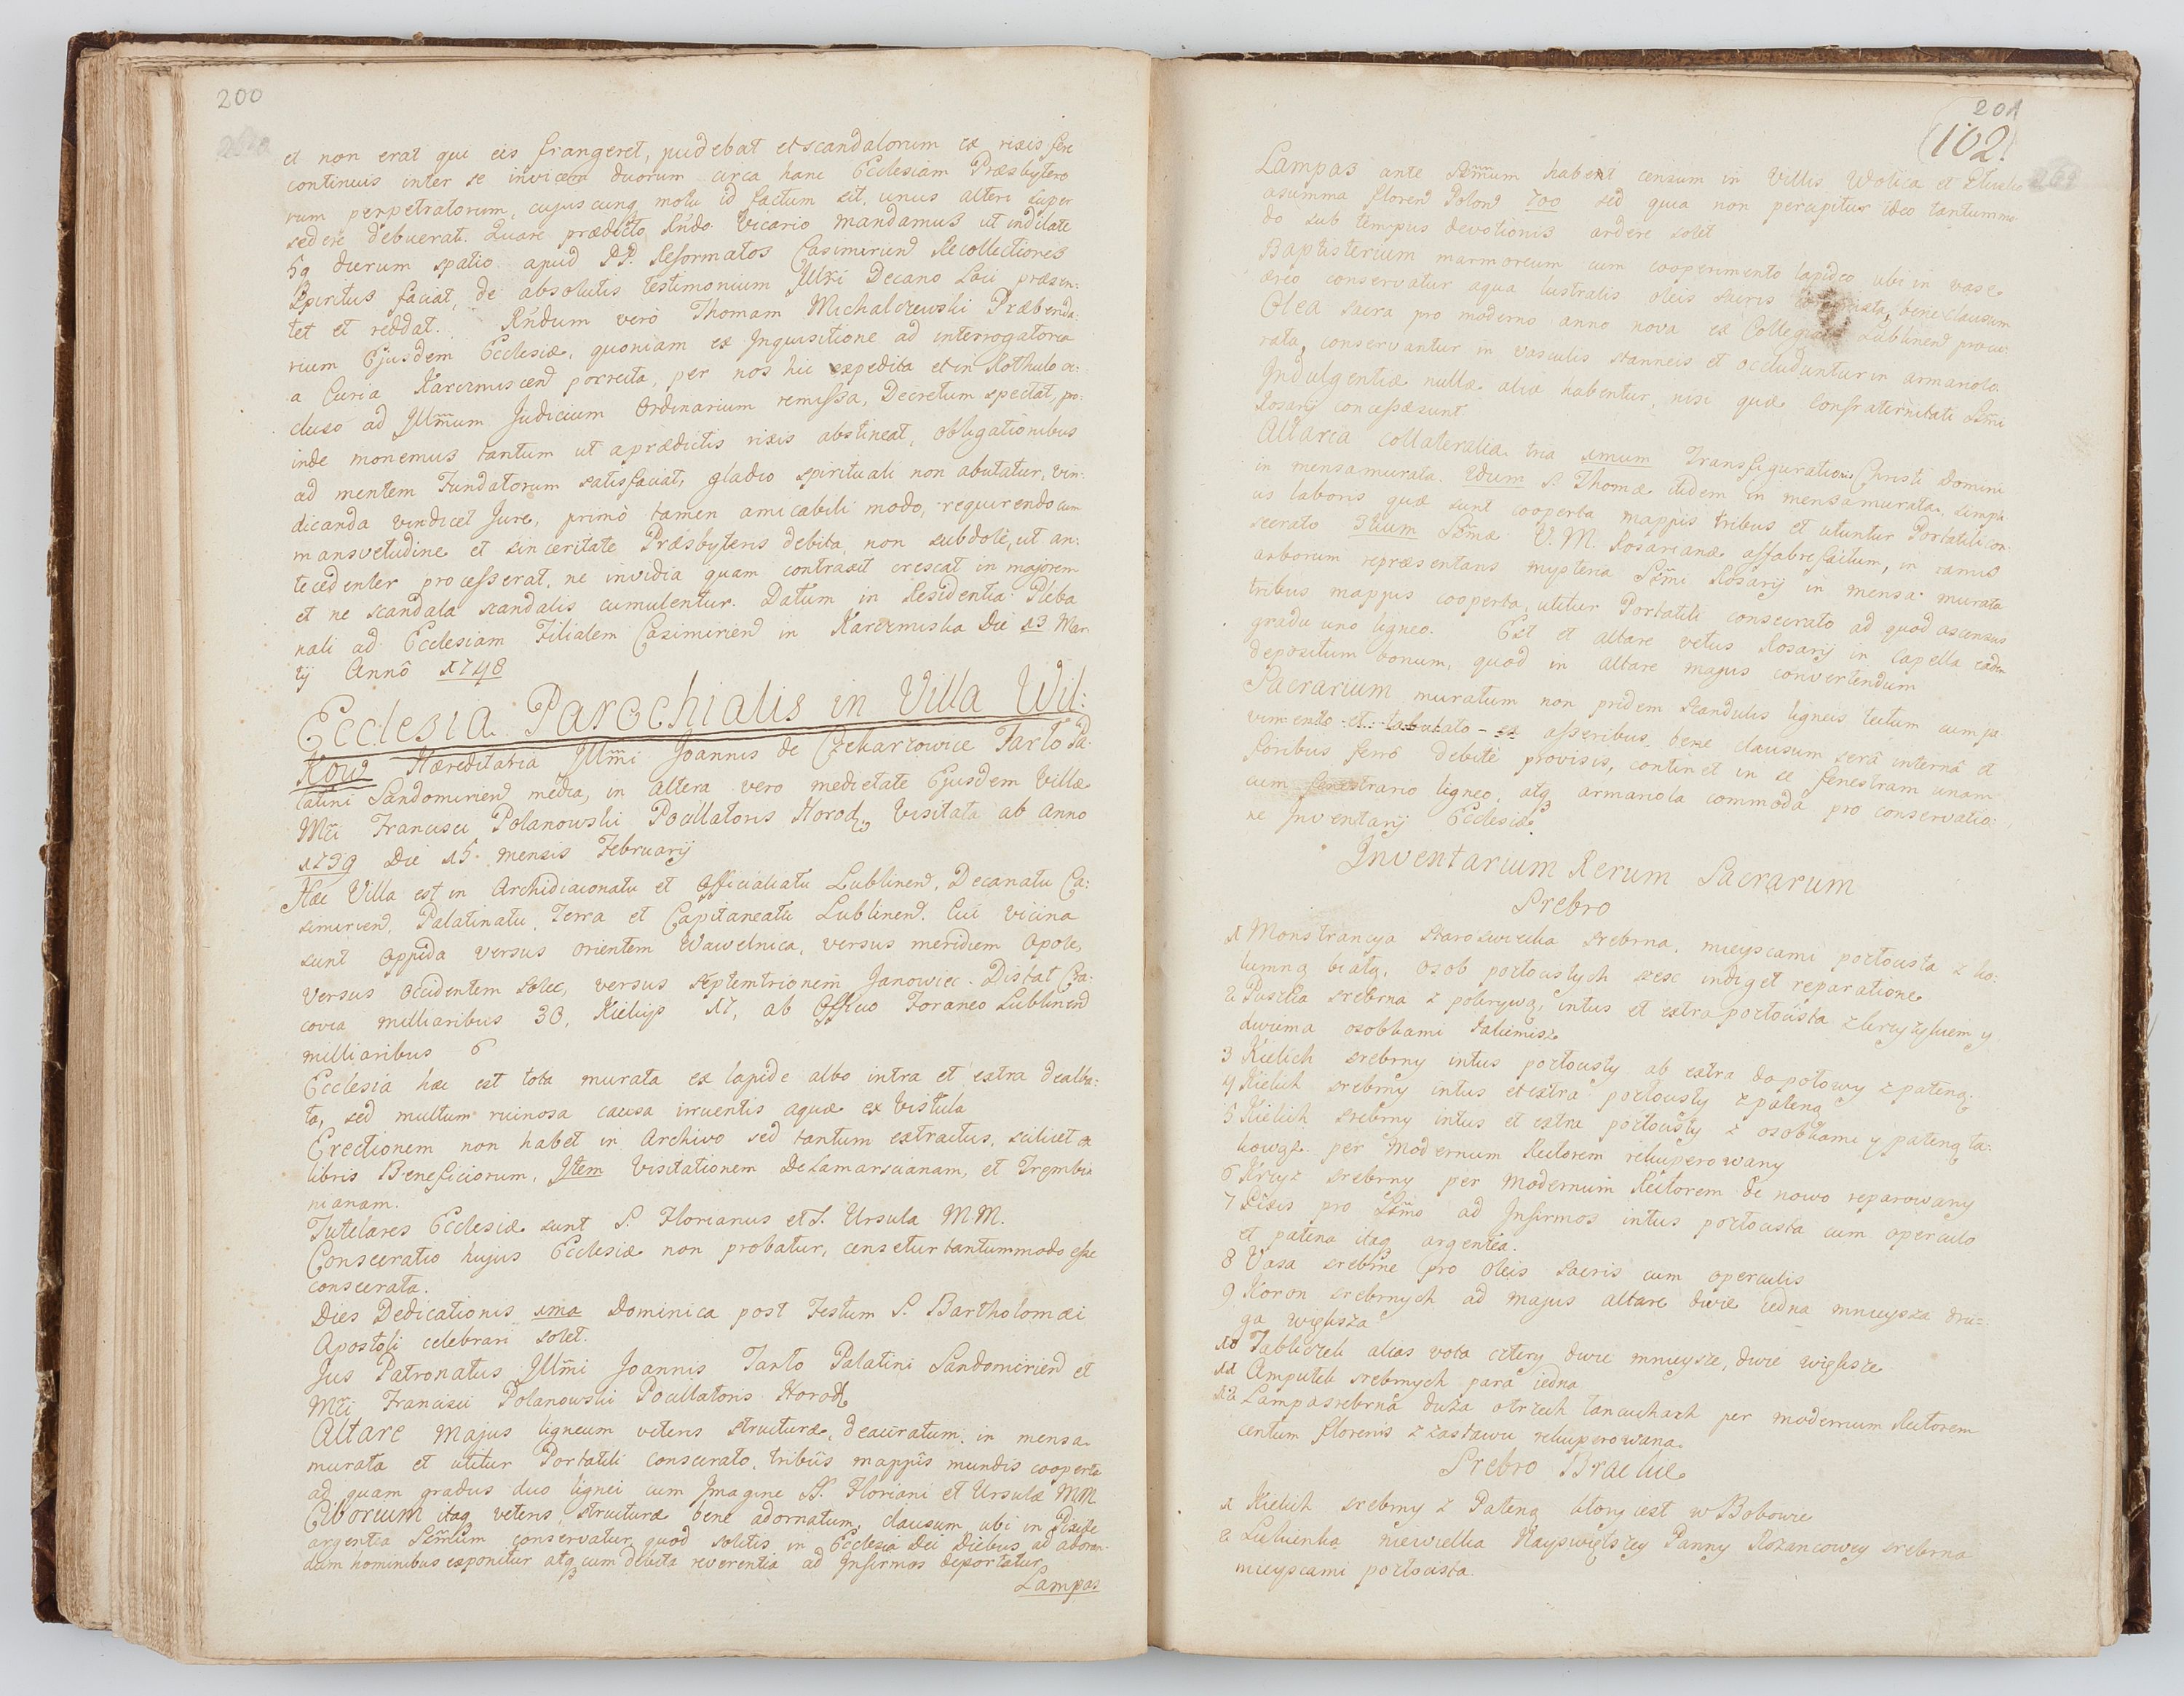 200
et non erat qui eis frangeret, pudebat et scandalorum ex rixis fere
continuis inter se invicem duorum circa hanc Ecclesiam Præsbytero
rum perpetratorum, cujuscunq motu id factum sit, unus alteri super
sedere debuerat. Quare prædicto Rńdo Vicario mandamus ut indilate
5q dierum spatio apud P.P. Reformatos Casimirien Recollectiones
Spiritus faciat, de absolutis testimonium Decano Loci præsen:
tet et reddat. Rńdum verò Thomam Michalczewski Præbenda
rium Ejusdem Ecclesiæ, quoniam ex Inquisitione ad interrogatoria
a Curia porrecta, per nos hic expedita et in Rothulo oc:
cluso ad Jllm̃um Judicium Ordinarium remissa, Decretum spectat, pro
inde monemus tantum ut a prædictis rixis abstineat, obligationibus
ad mentem Fundatorum satisfaciat, gladio spirituali non abutatur, vin:
dicanda vindicet Jure, primò tamen amicabili modo, requirendo cum
mansvetudine et sinceritate Præsbyteris debita, non subdolè, ut an:
tecedenter processerat, ne invidia quam contraxit crescat in majorem
et ne scandala scandalis cumulentur. Datum in Residentia Pleba
nali ad Ecclesiam Filialem Casimirien in Karczmiska Die 13 Mar
tij Annô 1748
Ecclesia Parochialis in Villa Wil:
Kow Hæreditaria Jllm̃i Joannis de Czekarzowice Tarło Pa:
latini Sandomirien media, in altera vero medietate Ejusdem Villæ
Mci Francisci Polanowski Pocillatoris Horod: Visitata ab Anno
1739 Die 15 mensis Februarij
Hæc Villa est in Archidiaconatu et Officialatu Lublinen, Decanatu Ca:
simirien, Palatinatu, Terra et Capitaneatu Lublinen. Cui vicina
sunt Oppida versus Orientem Wawelnica, versus meridiem Opole,
versus Occidentem Solec, versus Septemtrionem Janowiec. Distat Cra:
covia milliaribus 30, Kielijs 17, ab Officio Foraneo Lublinen
milliaribus 6
Ecclesia hæc est tota murata ex lapide albo intra et extra dealba:
ta, sed multum ruinosa causa irruentis aquæ ex Vistula
Erectionem non habet in Archivo sed tantum extractus, scilicet ex
libris Beneficiorum, Jtem Visitationem DeLamarscianam, et Trembin
nianam.
Tutelares Ecclesiæ sunt S. Florianus et S. Ursula M.M.
Consecratio hujus Ecclesiæ non probatur, censetur tantummodo esse
consecrata.
Dies Dedicationis 1ma Dominica post Festum S. Bartholomæi
Apostoli celebrari solet.
Jus Patronatus Jllm̃i Joannis Tarło Palatini Sandomirien et
Mci Francisci Polanowski Pocillatoris Horod
Altare Majus ligneum veteris structuræ, deauratum, in mensa
murata et utitur Portatili consecrato, tribus mappis mundis cooperta
ad quam gradus duo lignei cum Imagine SS. Floriani et Ursulæ MM.
Ciborium itaq veteris structuræ bene adornatum, clausum ubi in Pixide
argentea conservatur quod solitis in Ecclesia Dei Diebus ad adoran:
dum hominibus exponitur atq cum debita reverentia ad Infirmos deportatur
Lampas
201
(102)
Lampas ante Sm̃um habent censum in Villis Wolica et
a summa floren Polon 700 sed quia non percipitur ideo tantummo
do sub tempus devotionis ardere solet
Baptisterium marmoreum cum cooperimento lapideo ubi in vase
æreo conservatur aqua lustralis oleis sacris bene clausum
Olea sacra pro moderno anno nova ex Collegiata Lublinen procu:
rata, conservantur in vasculis stanneis et occluduntur in armariolo
Indulgentiæ nullæ aliæ habentur, nisi quæ Confraternitati Sm̃i
Rosarij concessæ sunt
Altaria collateralia tria 1mum Transfigurationis Christi Domini
in mensa murata. 2dum S. Thomæ itidem in mensa murata, simpli
us laboris quæ sunt cooperta mappis tribus et utuntur Portatili con:
secrato 3tium Sm̃æ V. M. Rosarianæ affabre factum, in ramis
arborum repræsentans mysteria Sm̃i Rosarij in mensa murata
tribus mappis cooperta, utitur Portatili consecrato ad quod ascensus
gradu uno ligneo. Est et altare vetus Rosarij in Capella eadem
depositum bonum, quod in Altare majus convertendum
Sacrarium muratum non pridem Scandulis ligneis tectum cum pa
vimento et tabulato ex asseribus, bene clausum serâ internâ et
foribus ferrô debitè provisis, continet in se fenestram unam
cum ligneo, atq armariola commoda pro conservatio:
ne Inventarij Ecclesiæ.
Inventarium Rerum Sacrarum
Srebro
1 Monstrancya staroswiecka srebrna, mieyscami pozłocista z ko:
lumną białą, osob pozłocistych szesc indiget reparatione
2 Puszka srebrna z pokrywą, intus et extra pozłocista z krzyzykiem y
dwiema osobkami takiemisz
3 Kielich srebrny intus pozłocisty ab extra do połowy z pateną.
4 Kielich srebrny intus et extra pozłocisty z pateną
5 Kielich srebrny intus et extra pozłocisty z osobkami y pateną ta:
kowąz per Modernum Rectorem rekuperowany
6 Krzyz srebrny per Modernum Rectorem de nowo reparowany
7 Pixis pro Sm̃o ad Infirmos intus pozłocista cum operculo
et patena itaq argentea.
8 Vasa srebrne pro Oleis Sacris cum operculis
9 Koron srebrnych ad majus altare dwie iedna mnieysza dru:
ga większa
10 Tabliczek alias vota cztery dwie mnieysze, dwie większe
11 Ampułek srebrnych para iedna
12 Lampa srebrna duża o trzech łancuchach per modernum Rectorem
centum florenis z zastawu rekuperowana
Srebro Brackie
1 Kielich srebrny z Pateną ktory iest w Bobowie
2 Sukienka niewielka Nayswiętszey Panny Rożancowey srebrna
mieyscami pozłocista